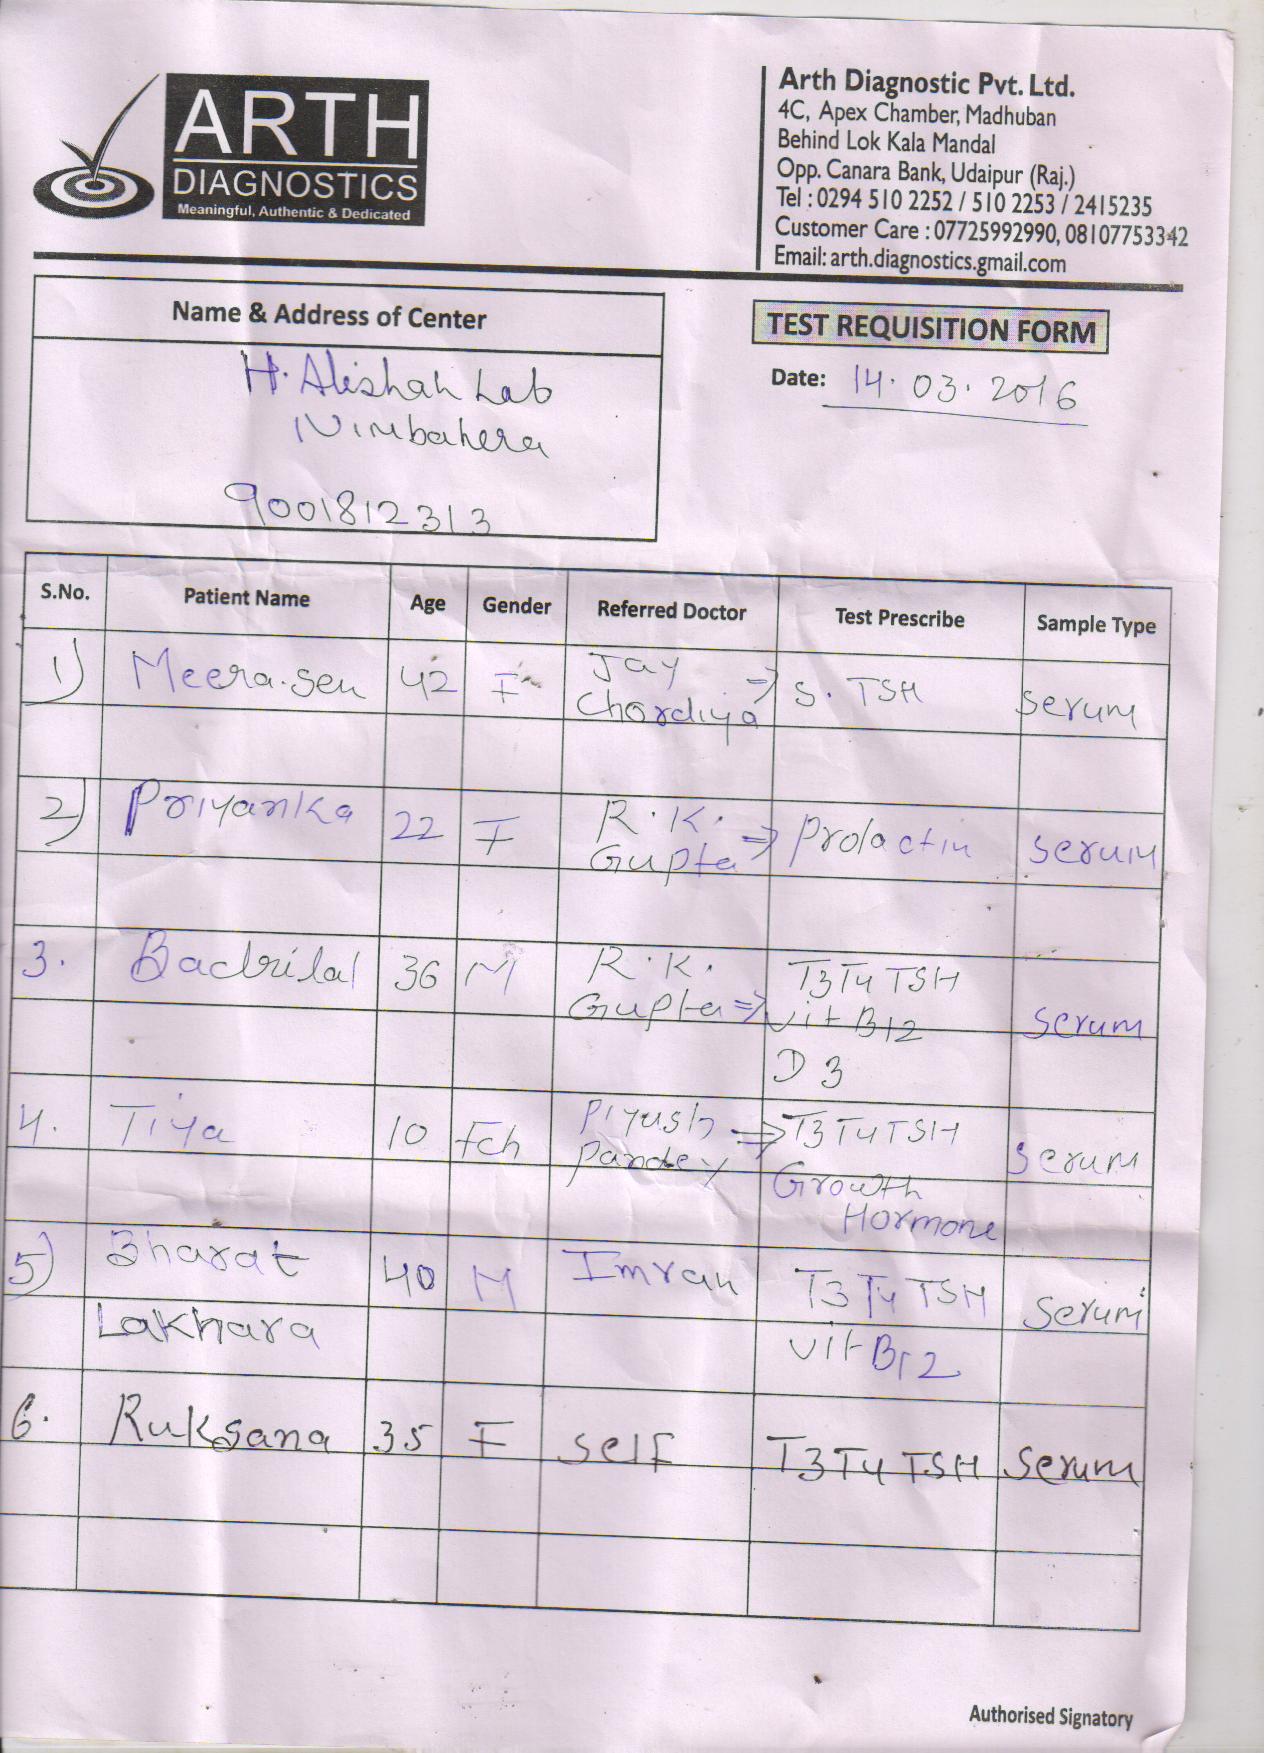 ARTH
DIAGNOSTICS
Meaningful, Authentic & Dedicated
Arth Diagnostic Pvt. Ltd.
4C, Apex Chamber, Madhuban
Behind Lok Kala Mandal
Opp. Canara Bank, Udaipur (Raj.)
Tel : 0294 510 2252 / 510 2253 / 2415235
Customer Care : 07725992990, 08107753342
Email: arth.diagnostics.gmail.com
Name & Address of Center
H. Alishah Lab
Nimbahera
9001812313
TEST REQUISITION FORM
Date: 14.03.2016
S.No. Patient Name Age Gender Referred Doctor Test Prescribe Sample Type
1) Meera.sen 42 F Jay Chordiya ⇒ S. TSH Serum
2) Priyanka 22 F R.K. Gupta ⇒ Prolactin Serum
3. Badrilal 36 M R.K. Gupta ⇒ T3 T4 TSH Serum
Vit B12
D3
4. Tiya 10 Fch Piyush Pandey ⇒ T3 T4 TSH Serum
Growth
Hormone
5) Bharat 40 M Imran T3 T4 TSH Serum
Lakhara Vit B12
6. Ruksana 35 F Self T3 T4 TSH Serum
Authorised Signatory